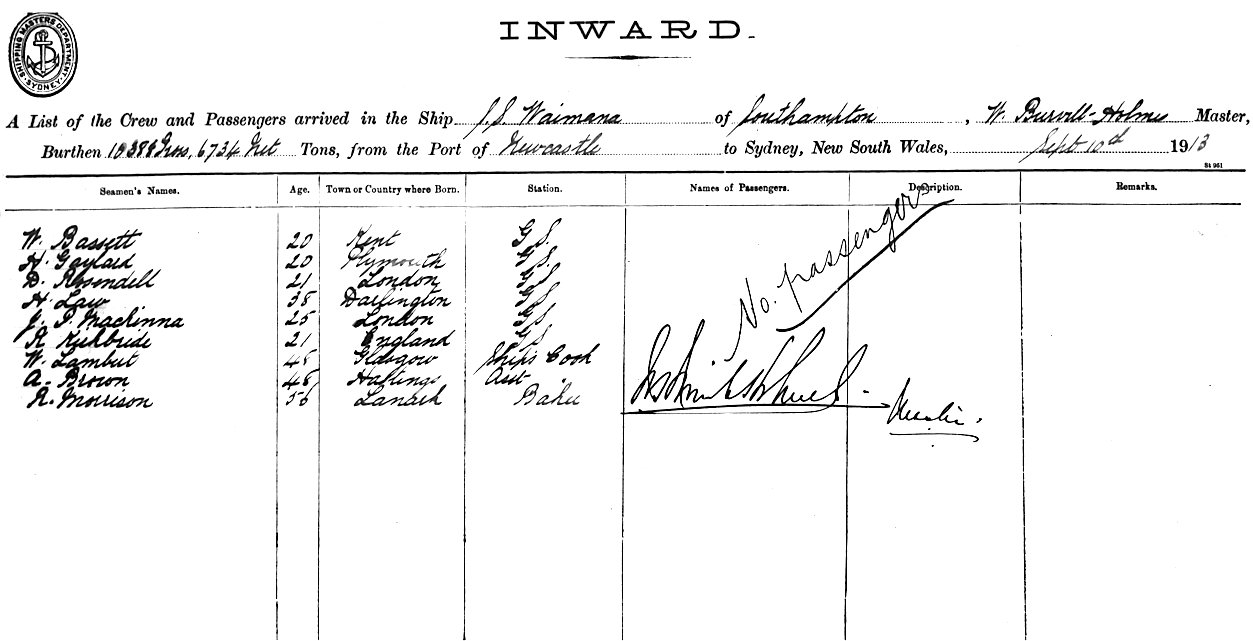 SHIPPING MASTERS DEPARTMENT
SYDNEY
INWARD.
A List of the Crew and Passengers arrived in the Ship S.S. Waimana of Southampton, W. Burvill-Holmes Master,
Burthen 10388 Gross, 6734 Net Tons, from the Port of Newcastle to Sydney, New South Wales, Sept 10th 1913
St 961
Seamen's Names. Age. Town or Country where Born. Station. Names of Passengers. Description. Remarks.
W. Bassett 20 Kent G.S.
H. Gaylard 20 Plymouth G.S.
D. Rosendell 21 London G.S.
H. Law 38 Darlington G.S.
J. P. Mackinna 25 London G.S.
R. Kirkbride 21 England G.S.
W. Lambert 45 Glasgow Ships Cook
A. Brown 48 Hastings Asst
R. Morrison 56 Lanark Baker
No. passengers